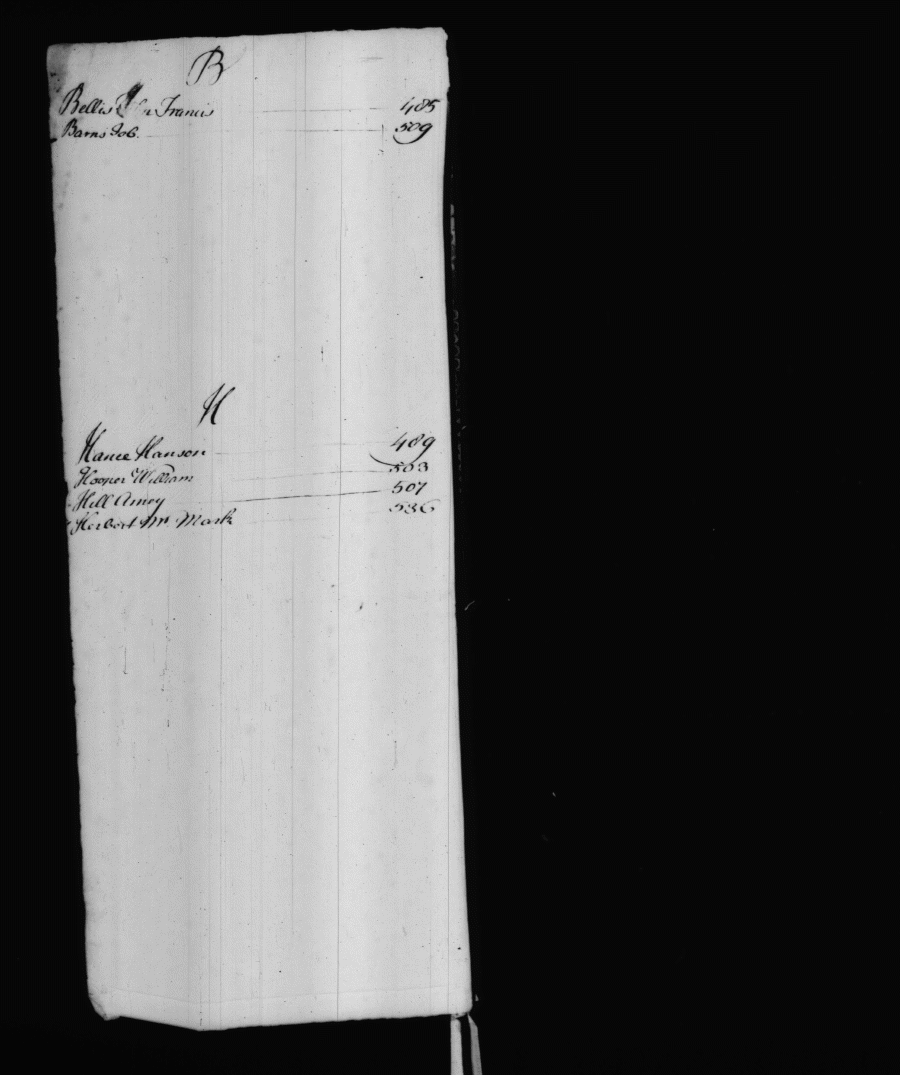 B
Bellis John Francis 485
Barns Job 509
H
Hance Hanson 489
Hooper William 503
Hill Amey 507
Herbert Mr. Mark 536